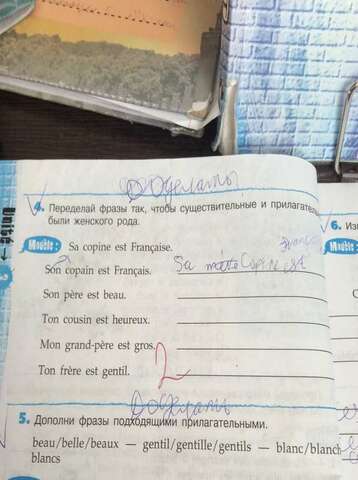 Доделать
4. Переделай фразы так, чтобы существительные и
были женского рода.
Modèle : Sa copine est Française.
Son copain est Français. Sa copine est
Son père est beau.
Ton cousin est heureux.
Mon grand-père est gros.
Ton frère est gentil.
2
Доделать
5. Дополни фразы подходящими прилагательными.
beau/belle/beaux — gentil/gentille/gentils — blanc/blanch
blancs
Unité
6.
Modèle